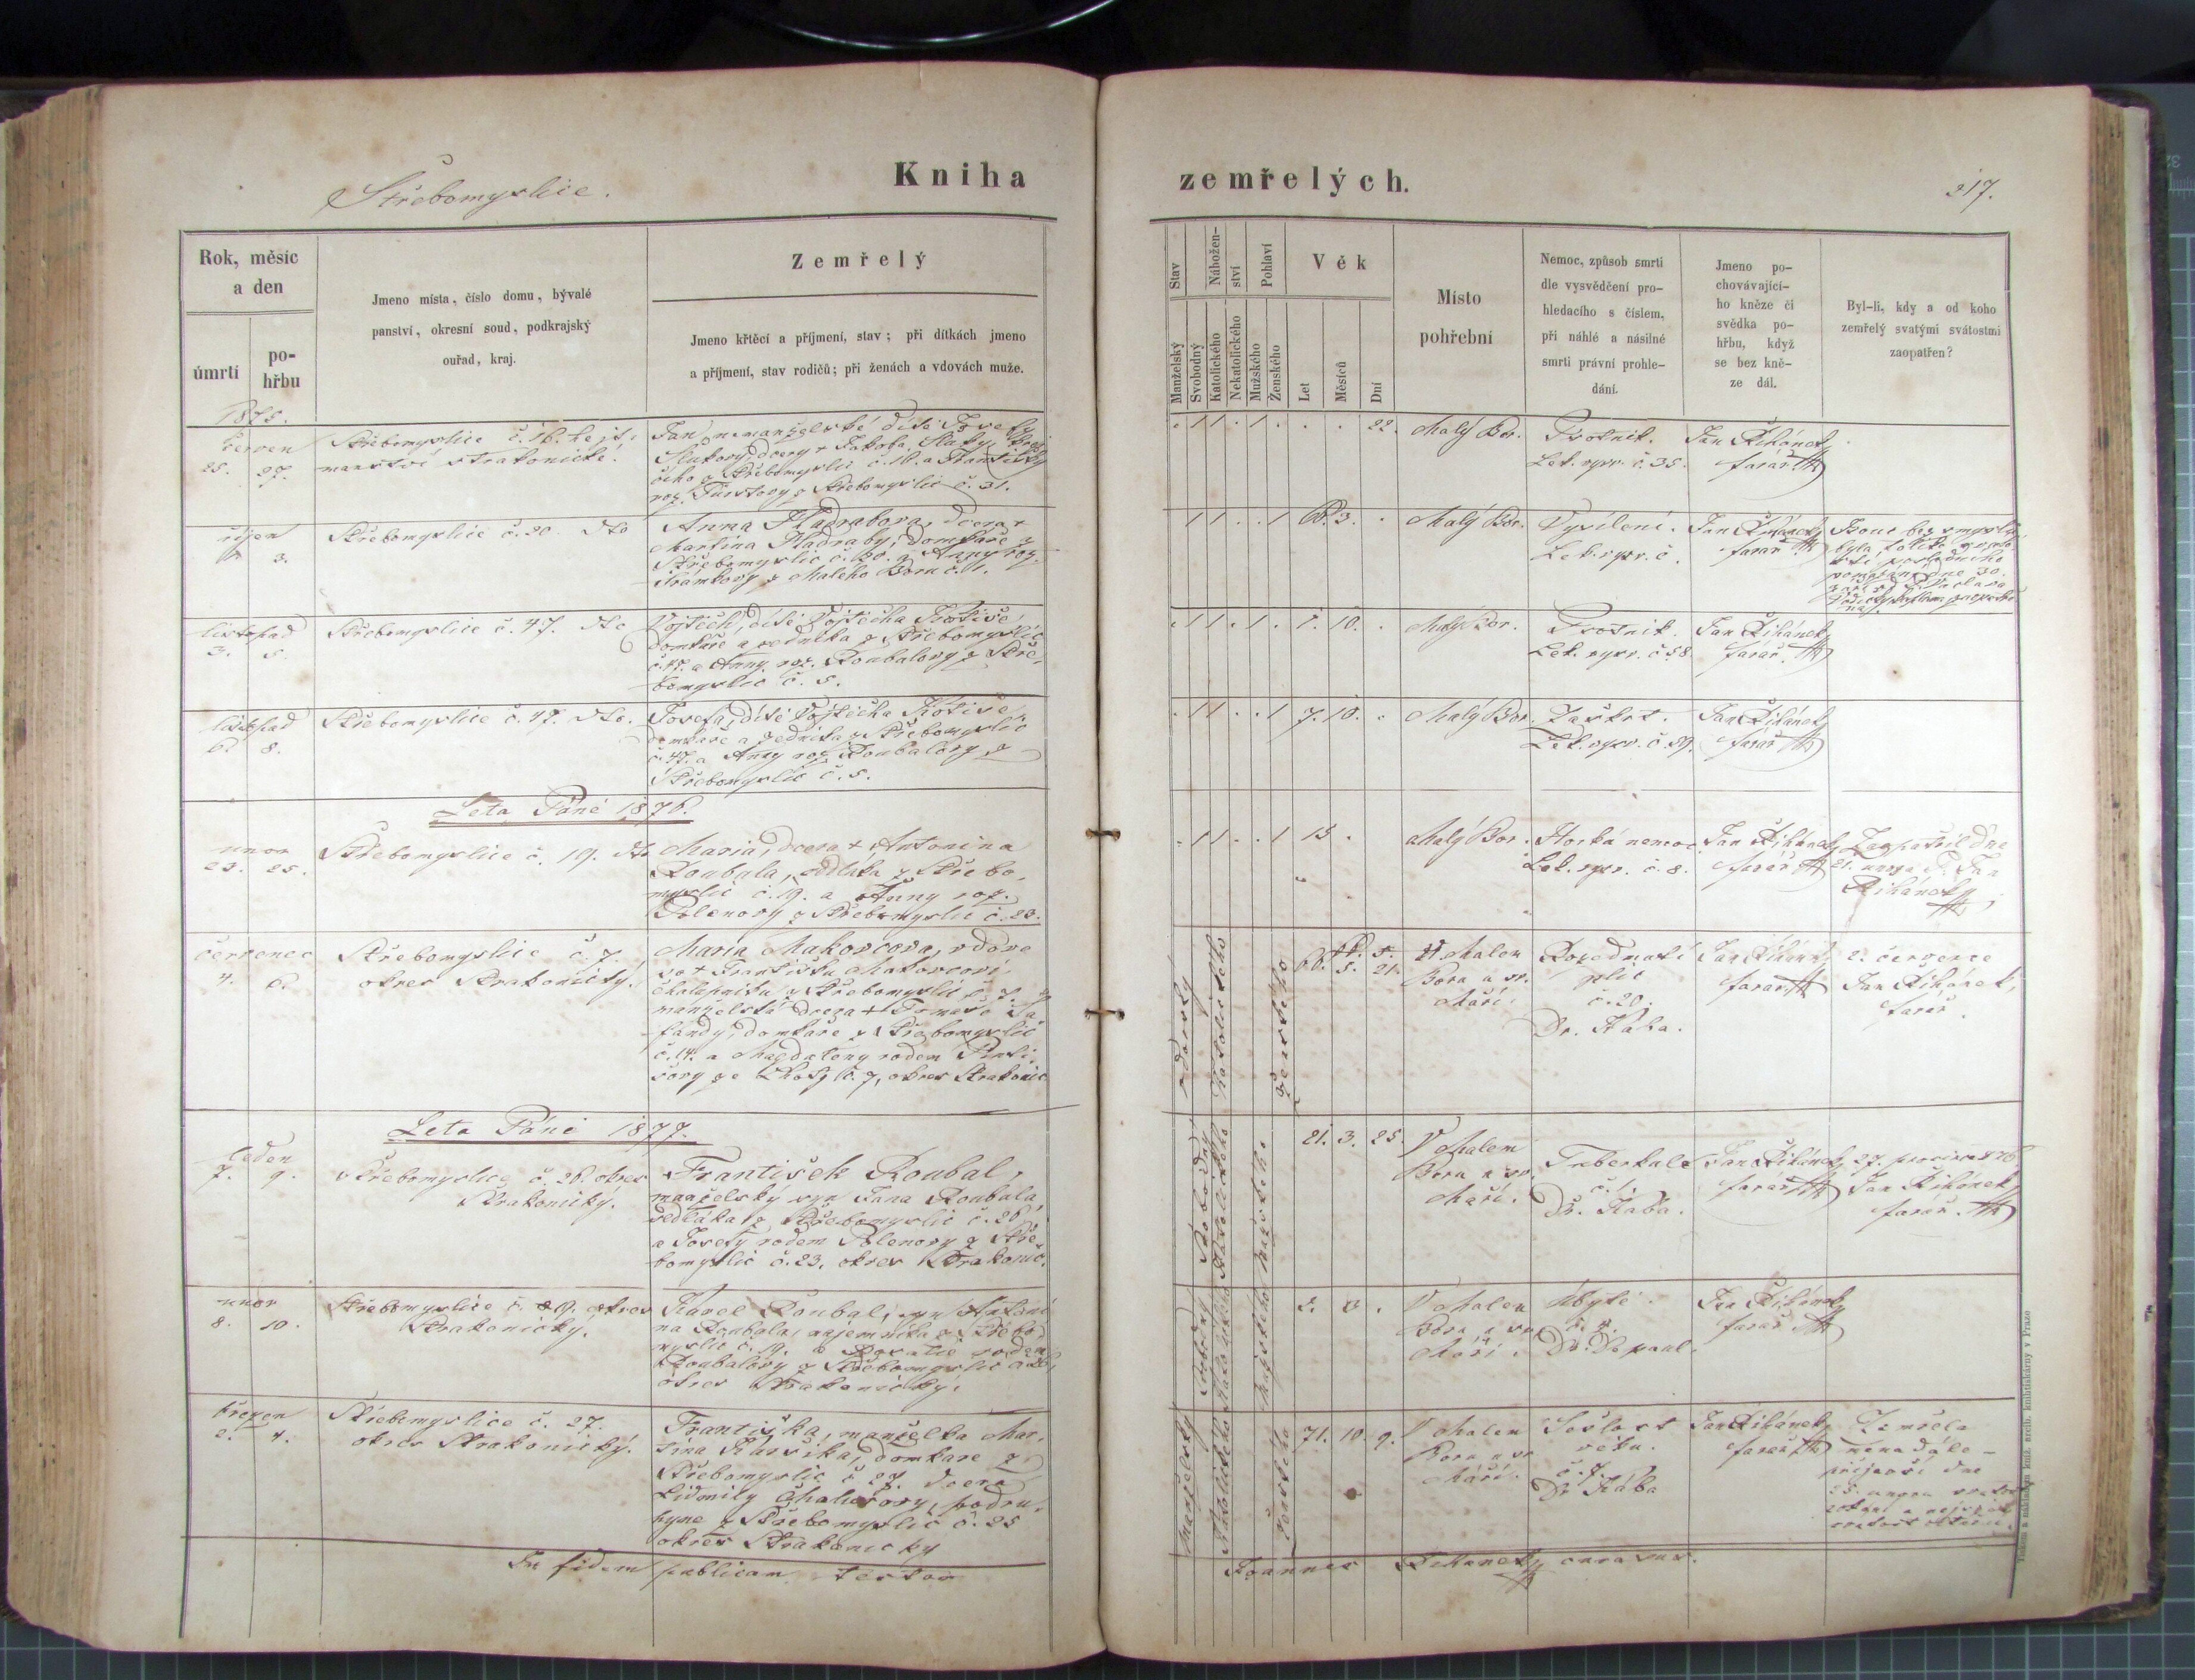 Střebomyslice.
Kniha
zemřelých.
317.
Rok, měsíc
a den
úmrtí
po-
hřbu
Jmeno místa, číslo domu, bývalé
panství, okresní soud, podkrajský
ouřad, kraj.
Zemřelý
Jmeno křtěcí a příjmení, stav; při dítkách jmeno
a příjmení, stav rodičů; při ženách a vdovách muže.
Stav
Manželský
Svobodný
Nábožen-
ství
Katolického
Nekatolického
Pohlaví
Mužského
Ženského
Věk
Let
Měsíců
Dní
Místo
pohřební
Nemoc, způsob smrti
dle vysvědčení pro-
hledacího s číslem,
při náhlé a násilné
smrti právní prohle-
dání.
Jmeno po-
chovávající-
ho kněze či
svědka po-
hřbu, když
se bez kně-
ze dál.
Byl-li, kdy a od koho
zemřelý svatými svátostmi
zaopatřen?
1875.
červen
25. 27.
Střebomyslice č. 16.
Jan, nemanželské dítě Josefy
dcery + Jakoba
z Střebomyslic č. 16. a Františky
z Střebomyslic č. 31.
22.
Malý Bor.
Psotník.
Lek. vysv. č. 35.
Jan Řihánek
farář
říjen
3.
Střebomyslice č. 20. dto
Anna Hadrabova, dcera +
Martina Hadraby, domkáře z
Střebomyslic č. 20. a Anny roz.
z Malého Boru č. 1.
3.
Malý Bor.
Vysílení.
Lek. vysv. č.
Jan Řihánek
farář
listopad
3. 5.
Střebomyslice č. 47. dto
Vojtěch, dítě Vojtěcha Kotiše,
domkáře a zedníka z Střebomyslic
č. 47. a Anny roz. Roubalovy z Stře-
bomyslic č. 5.
1. 10.
Malý Bor.
Psotník.
Lek. vysv. č. 58.
Jan Řihánek
farář
listopad
6. 8.
Střebomyslice č. 47. dto.
Josefa, dítě Vojtěcha Kotiše,
domkáře a zedníka z Střebomyslic
č. 47. a Anny roz. Roubalovy z
Střebomyslic č. 5.
7. 10.
Malý Bor.
Zaškrt.
Lek. vysv. č. 59.
Jan Řihánek
farář
Léta Páně 1876.
unor
23. 25.
Střebomyslice č. 19. dto
Maria, dcera + Antonina
Roubala, sedláka z Střebo-
myslic č. 19. a Anny roz.
Polenovy z Střebomyslic č. 23.
15
Malý Bor.
Horká nemoc
Lek. vysv. č. 8.
Jan Řihánek
farář
Zaopatřil dne
21. unora P. Jan
Řihánek
červenec
4. 6.
Střebomyslice č. 7.
okres Strakonický.
Maria Makovcova, vdova
po + Františku Makovcovi,
chalupníku z Střebomyslic č. 7.
manželská dcera + Tomáše
domkáře z Střebomyslic
č. 14. a Magdaleny rodem
ze Lhoty č. 7, okres Strakonic
vdovský
Katolického
ženského
66. 5. 21.
V Malem
Boru u sv.
Máří.
plic
č. 20.
Dr. Kába.
Jan Řihánek
farář
2. července
Jan Řihánek,
farář.
Léta Páně 1877.
leden
7. 9.
Střebomyslice č. 26. okres
Strakonický.
František Roubal,
manželský syn Jana Roubala,
sedláka z Střebomyslic č. 26
a Josefy rodem Polenovy z Stře-
bomyslic č. 23, okres Strakonic.
Svobodný
Katolického
Mužského
21. 3. 25.
V Malem
Boru u sv.
Máří.
Tuberkule
č. 1.
Dr. Kába.
Jan Řihánek
farář
27. prosince 876
Jan Řihánek
farář.
unor
8. 10.
Střebomyslice č. 19. okres
Strakonický.
Karel Roubal, syn Antoni-
na Roubala, nájemníka z Střebo-
myslic č. 19. a Rosalie rodem
Roubalovy z Střebomyslic
okres Strakonický.
Svobodný
Katolického
Mužského
V Malem
Boru u sv.
Máří.
Ubytě.
Jan Řihánek
farář
březen
2. 4.
Střebomyslice č. 27.
okres Strakonický.
Františka, manželka Mar-
tina domkáře z
Střebomyslic č. 27. dcera
Lidmily podru-
hyně z Střebomyslic č. 25
okres Strakonický
Manželský
Katolického
Ženského
71. 10. 9.
V Malem
Boru u sv.
Máří.
Sešlost
věku.
č. 7.
Dr. Kába
Jan Řihánek
farář
Zemřela
nenadále -
přijavší dne
In fidem publicam testor
Joannes Řihanek, curatus.